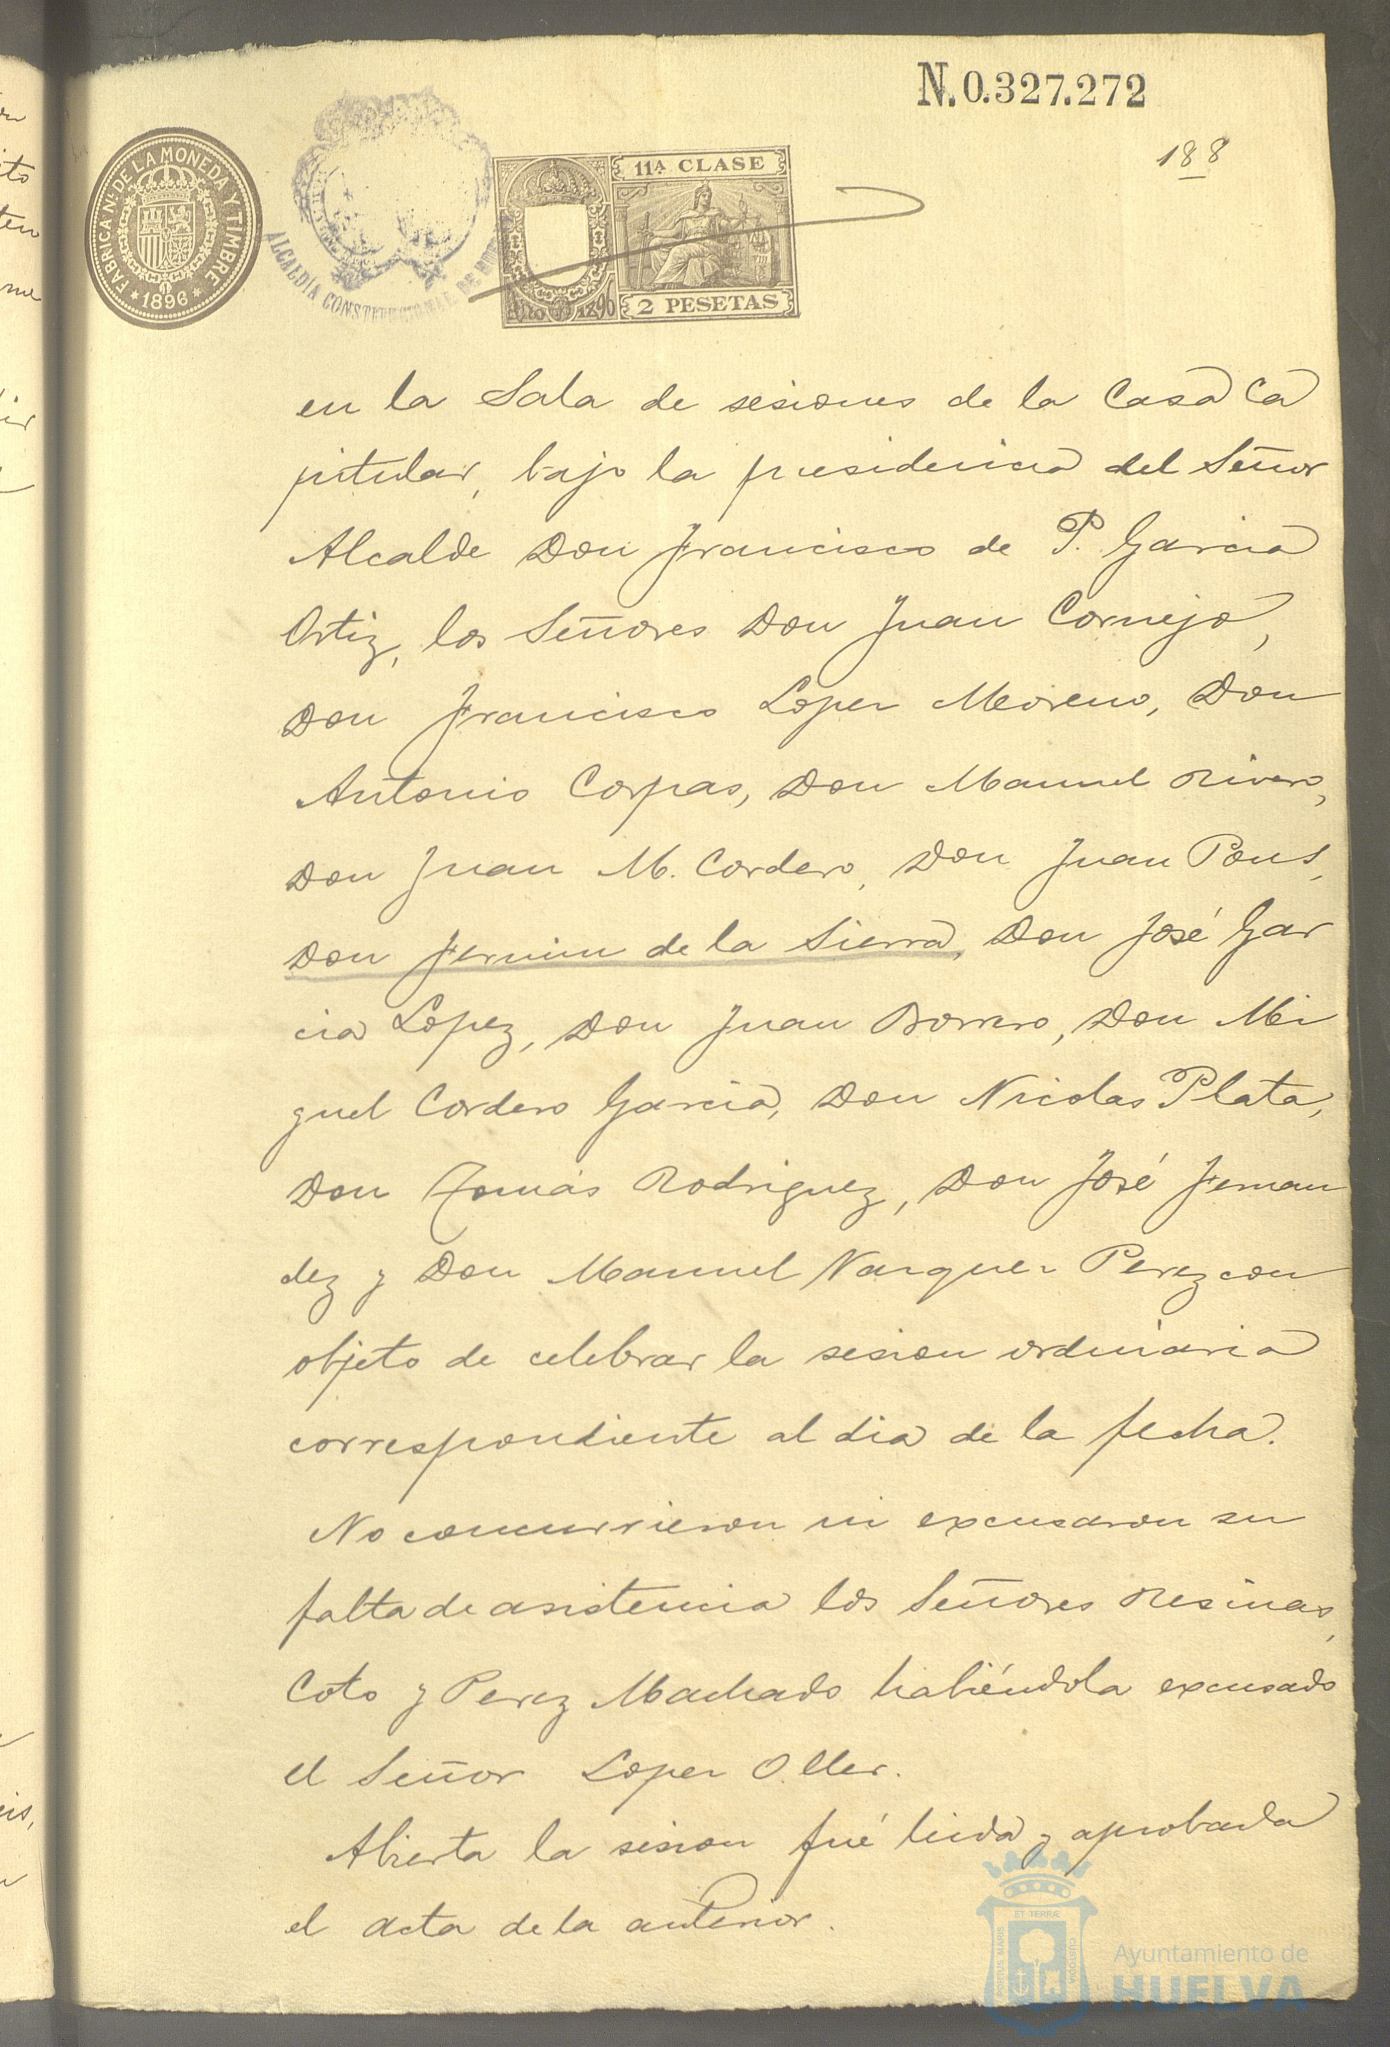 N.0.327.272
188
FABRICA Nl. DE LA MONEDA Y TIMBRE
* 1896 *
ALCALDÍA CONSTITUCIONAL DE
11ª CLASE
2 PESETAS
1896
en la Sala de sesiones de la Casa Ca
pitular, bajo la presidencia del Señor
Alcalde Don Francisco de P. Garcia
Ortiz, los Señores Don Juan Cornejo,
Don Francisco Lopez Moreno, Don
Antonio Corpas, Don Manuel Rivero,
Don Juan M. Cordero, Don Juan Pons,
Don Fermin de la Sierra, Don José Gar
cia Lopez, Don Juan Borrero, Don Mi
guel Cordero Garcia, Don Nicolas Plata,
Don Tomás Rodriguez, Don José Fernan
dez y Don Manuel Vazquez Perez con
objeto de celebrar la sesion ordinaria
correspondiente al dia de la fecha.
No concurrieron ni excusaron su
falta de asistencia los Señores Resinas,
Coto y Perez Machado habiéndola excusado
el Señor Lopez Oller.
Abierta la sesion fué leida y aprobada
el acta de la anterior.
PORTUS MARIS ET TERRÆ CUSTODIA
Ayuntamiento de
HUELVA